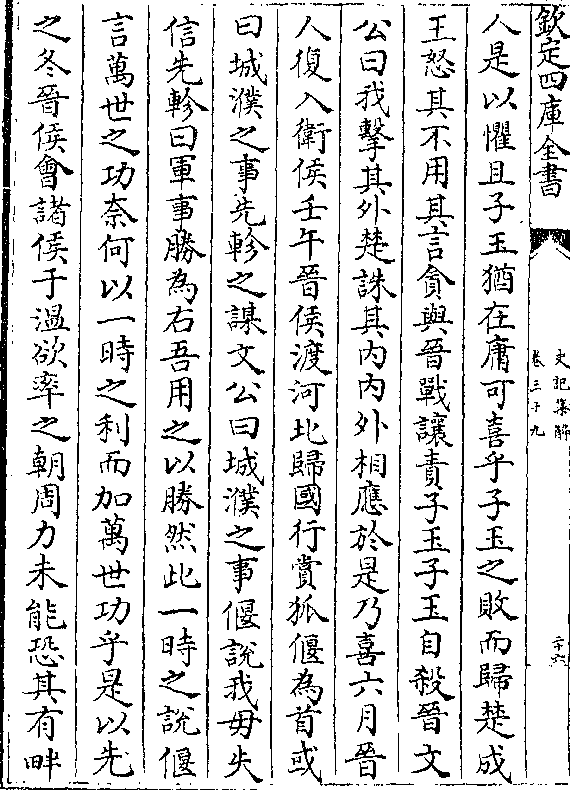 欽定四庫全書
史記集解
卷三十九
二十六
人是以懼且子玉猶在庸可喜乎子玉之敗而歸楚成
王怒其不用其言貪與晉戰讓責子玉子玉自殺晉文
公曰我擊其外楚誅其內內外相應於是乃喜六月晉
人復入衛侯壬午晉侯渡河北歸國行賞狐偃為首或
曰城濮之事先軫之謀文公曰城濮之事偃說我毋失
信先軫曰軍事勝為右吾用之以勝然此一時之說偃
言萬世之功奈何以一時之利而加萬世功乎是以先
之冬晉侯會諸侯于溫欲率之朝周力未能恐其有畔